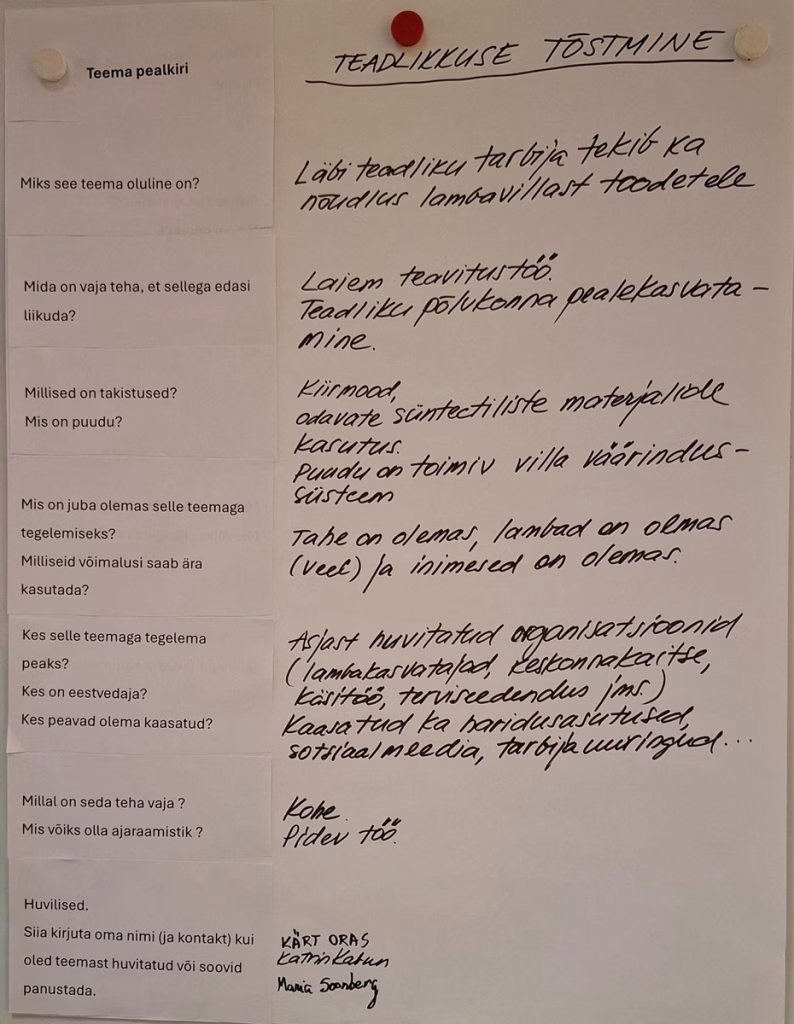 Teema pealkiri
TEADLIKKUSE TÕSTMINE
Miks see teema oluline on?
Läbi teadliku tarbija tekib ka
nõudlus lambavillast toodetele
Mida on vaja teha, et sellega edasi
liikuda?
Laiem teavitustöö.
Teadliku põlvkonna pealekasvata-
mine.
Millised on takistused?
Mis on puudu?
Kiirmood,
odavate süntectiliste materjalide
kasutus.
Puudu on toimiv villa väärindus-
süsteem
Mis on juba olemas selle teemaga
tegelemiseks?
Milliseid võimalusi saab ära
kasutada?
Tahe on olemas, lambad on olmas
(veel) ja inimesed on olemas.
Kes selle teemaga tegelema
peaks?
Kes on eestvedaja?
Kes peavad olema kaasatud?
Asjast huvitatud organisatsioonid
(lambakasvatajad, keskonnakaitse,
käsitöö, terviseedendus jms.)
Kaasatud ka haridusasutused,
sotsiaalmeedia, tarbijauuringud...
Millal on seda teha vaja ?
Mis võiks olla ajaraamistik ?
Kohe.
Pidev töö.
Huvilised.
Siia kirjuta oma nimi (ja kontakt) kui
oled teemast huvitatud või soovid
panustada.
KÄRT ORAS
Katrin Kabun
Maria Soonberg